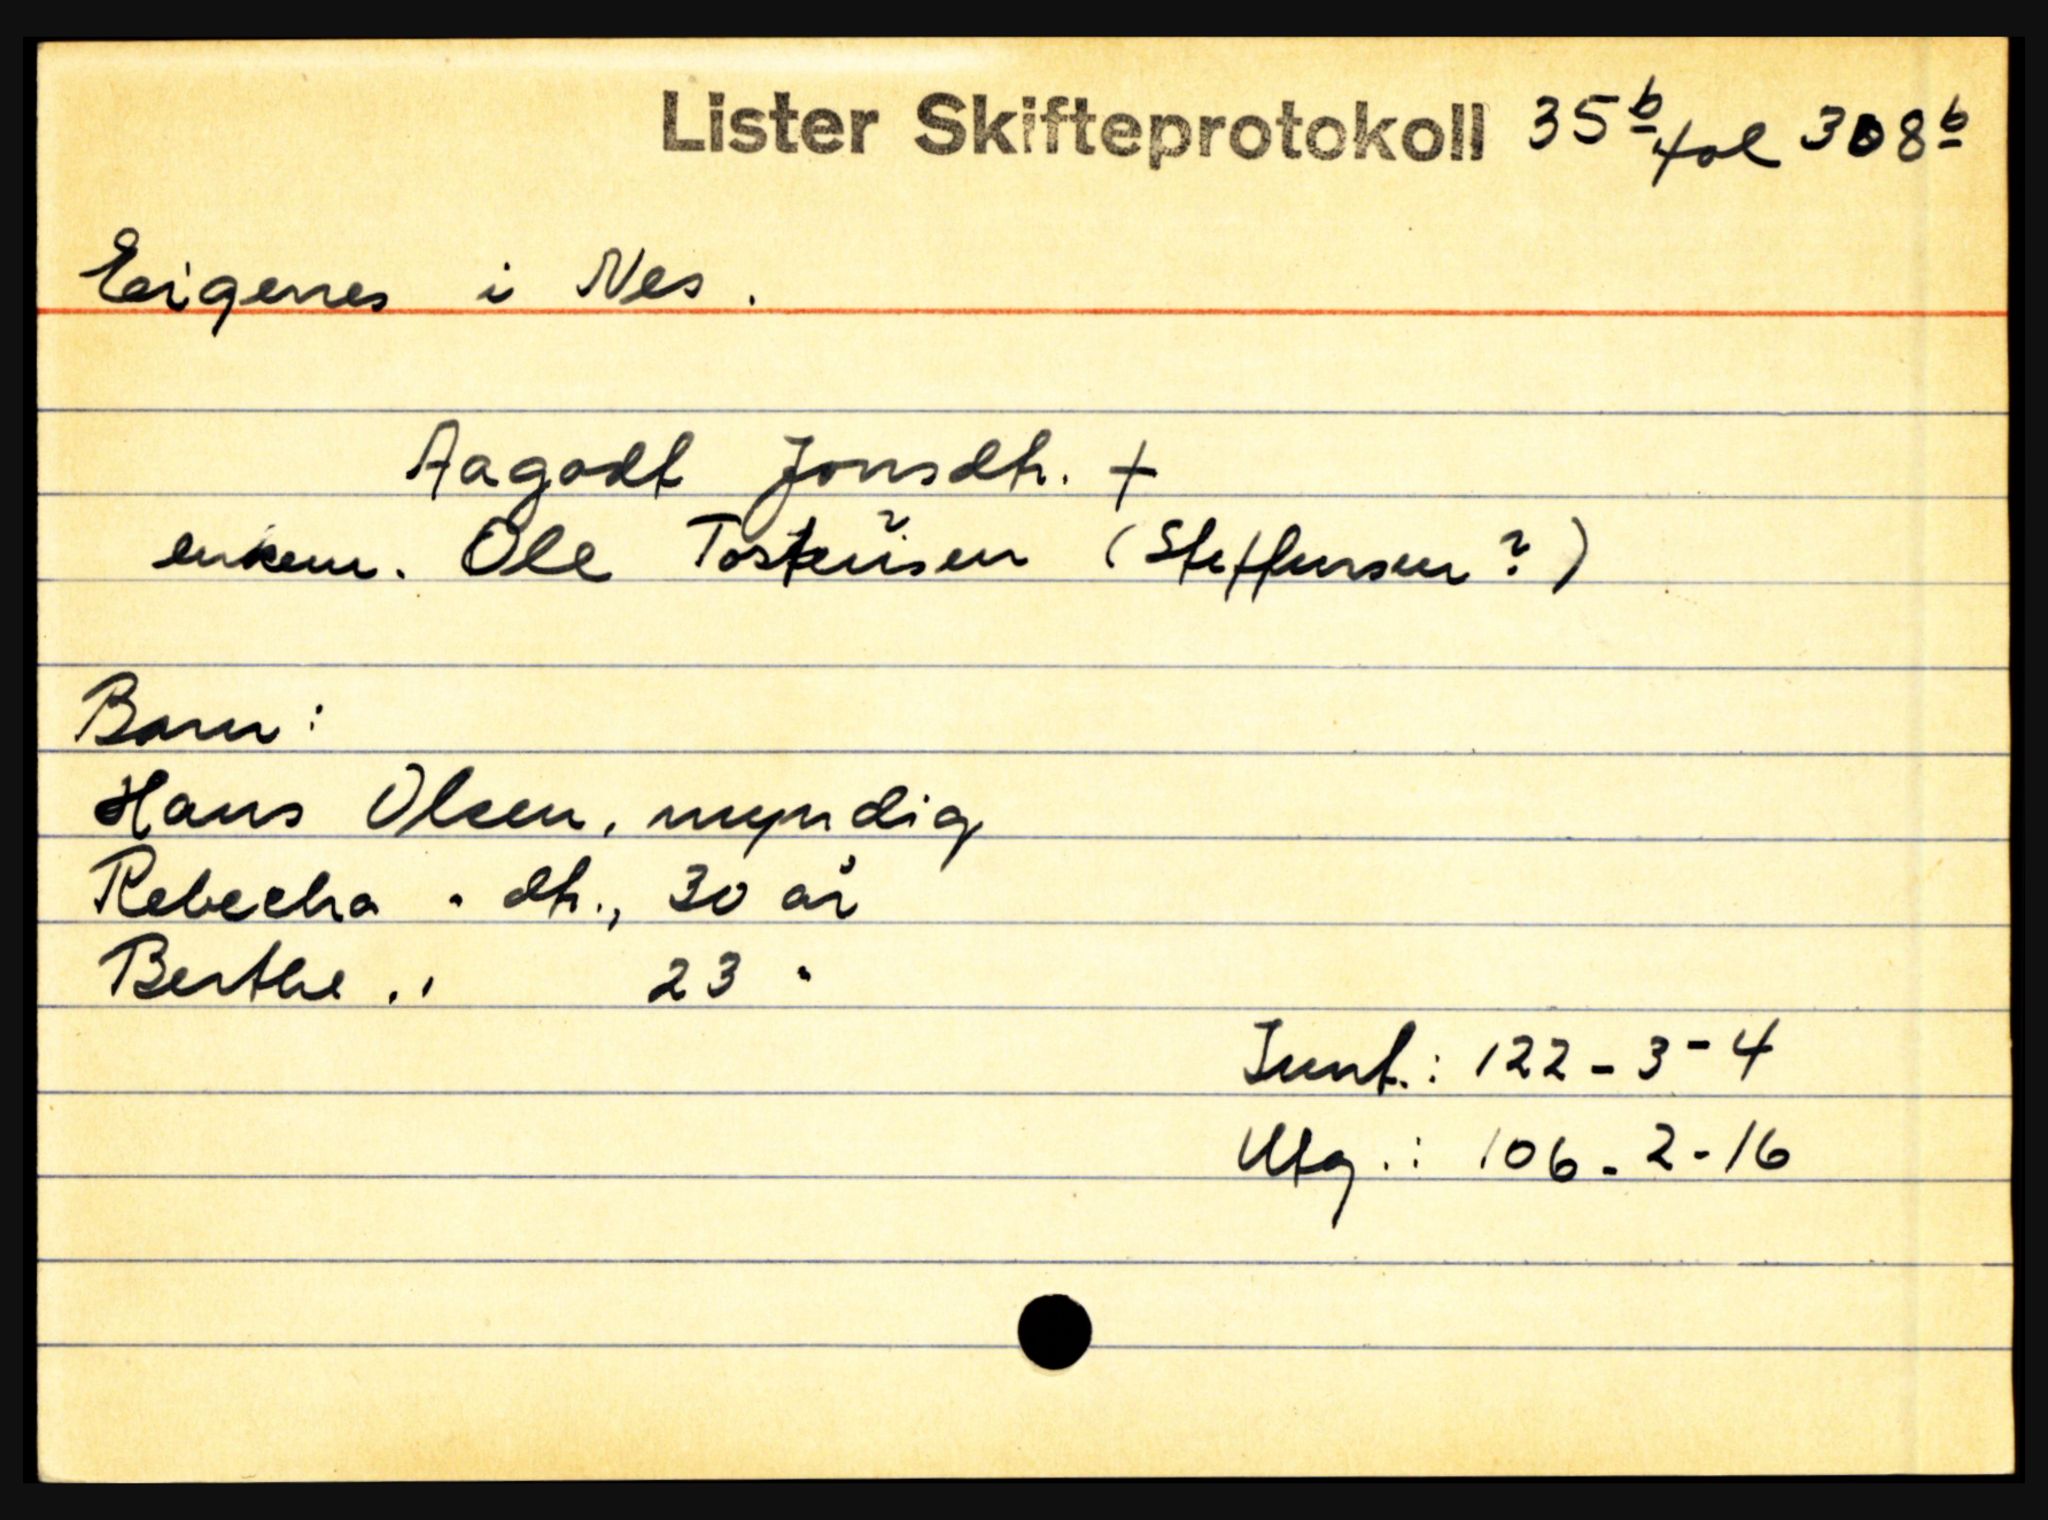 Lister Skifteprotokoll 35b fol 308b
Eigenes i Nes.
Aagodt Jonsdtr. +
enkem. Ole Tosteïsen (Steffensen?)
Barn:
Hans Olsen, myndig
Rebecha " dtr., 30 år
Berthe " 23 "
Innt.: 122-3-4
Utg.: 106-2-16